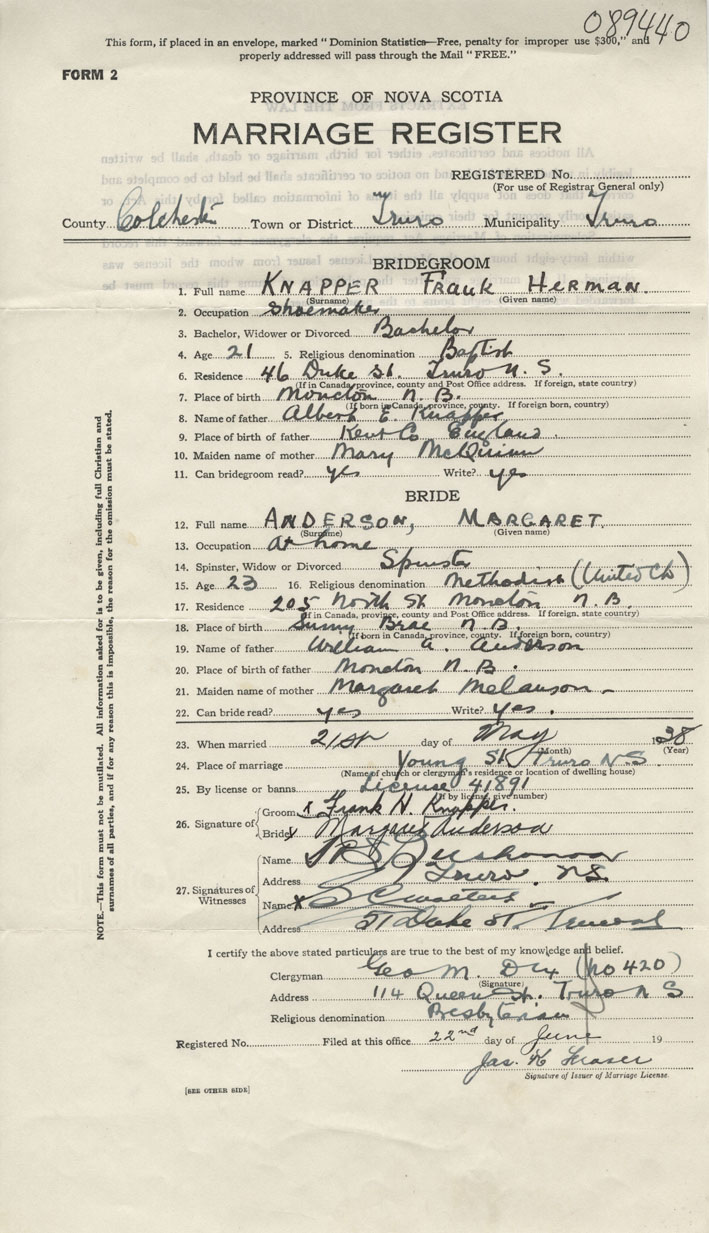 089440
This form, if placed in an envelope, marked "Dominion Statistics—Free, penalty for improper use $300," and
properly addressed will pass through the Mail "FREE."
FORM 2
PROVINCE OF NOVA SCOTIA
MARRIAGE REGISTER
REGISTERED No.
(For use of Registrar General only)
County Colchester Town or District Truro Municipality Truro
BRIDEGROOM
1. Full name KNAPPER FRANK HERMAN.
(Surname) (Given name)
2. Occupation Shoemaker
3. Bachelor, Widower or Divorced Bachelor
4. Age 21 5. Religious denomination Baptist
6. Residence 46 Duke St. Truro N. S.
(If in Canada, province, county and Post Office address. If foreign, state country)
7. Place of birth Moncton N. B.
(If born in Canada, province, county. If foreign born, country)
8. Name of father Albert E. Knapper
9. Place of birth of father Kent Co England
10. Maiden name of mother Mary McQuinn
11. Can bridegroom read? yes Write? yes
BRIDE
12. Full name ANDERSON, MARGARET.
(Surname) (Given name)
13. Occupation at home
14. Spinster, Widow or Divorced Spinster
15. Age 23 16. Religious denomination Methodist (United Ch)
17. Residence 205 North St Moncton N. B.
(If in Canada, province, county and Post Office address. If foreign, state country)
18. Place of birth Sunny Brae N. B.
(If born in Canada, province, county. If foreign born, country)
19. Name of father William A. Anderson
20. Place of birth of father Moncton N. B.
21. Maiden name of mother Margaret Melanson
22. Can bride read? yes Write? yes.
23. When married 21st day of May 1938
(Month) (Year)
24. Place of marriage Young St Truro N.S.
(Name of church or clergyman's residence or location of dwelling house)
25. By license or banns License 41891
(If by license, give number)
26. Signature of Groom x Frank H. Knapper.
Bride x Margaret Anderson
27. Signatures of Witnesses
Name
Address Truro, N.S.
Name x
Address 51 Duke St.
I certify the above stated particulars are true to the best of my knowledge and belief.
Clergyman Geo M. (No 420)
(Signature)
Address 114 Queen St. Truro N S
Religious denomination Presbyterian
Registered No. Filed at this office 22nd day of June 19
Jas. K Fraser
Signature of Issuer of Marriage License.
[SEE OTHER SIDE]
NOTE.—This form must not be mutilated. All information asked for is to be given, including full Christian and
surnames of all parties, and if for any reason this is impossible, the reason for the omission must be stated.